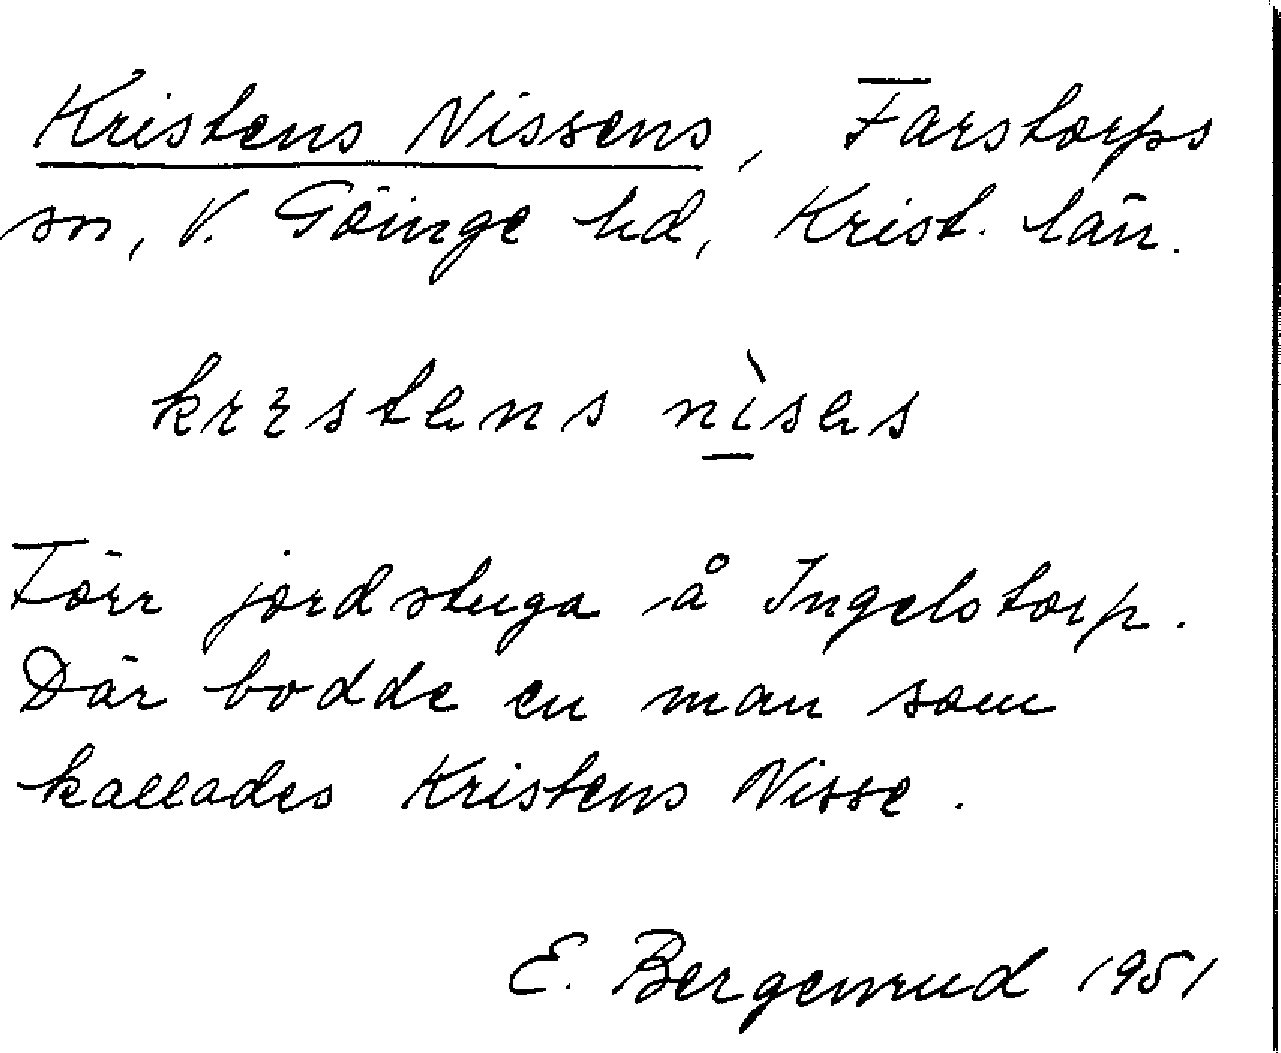 Kristens Nissens, Farstorps
sn, V. Göinge hd, Krist. län.
nìsas
Förr jordstuga å Ingelstorp.
Där bodde en man som
kallades Kristens Nisse.
E. Bergenrud 1951